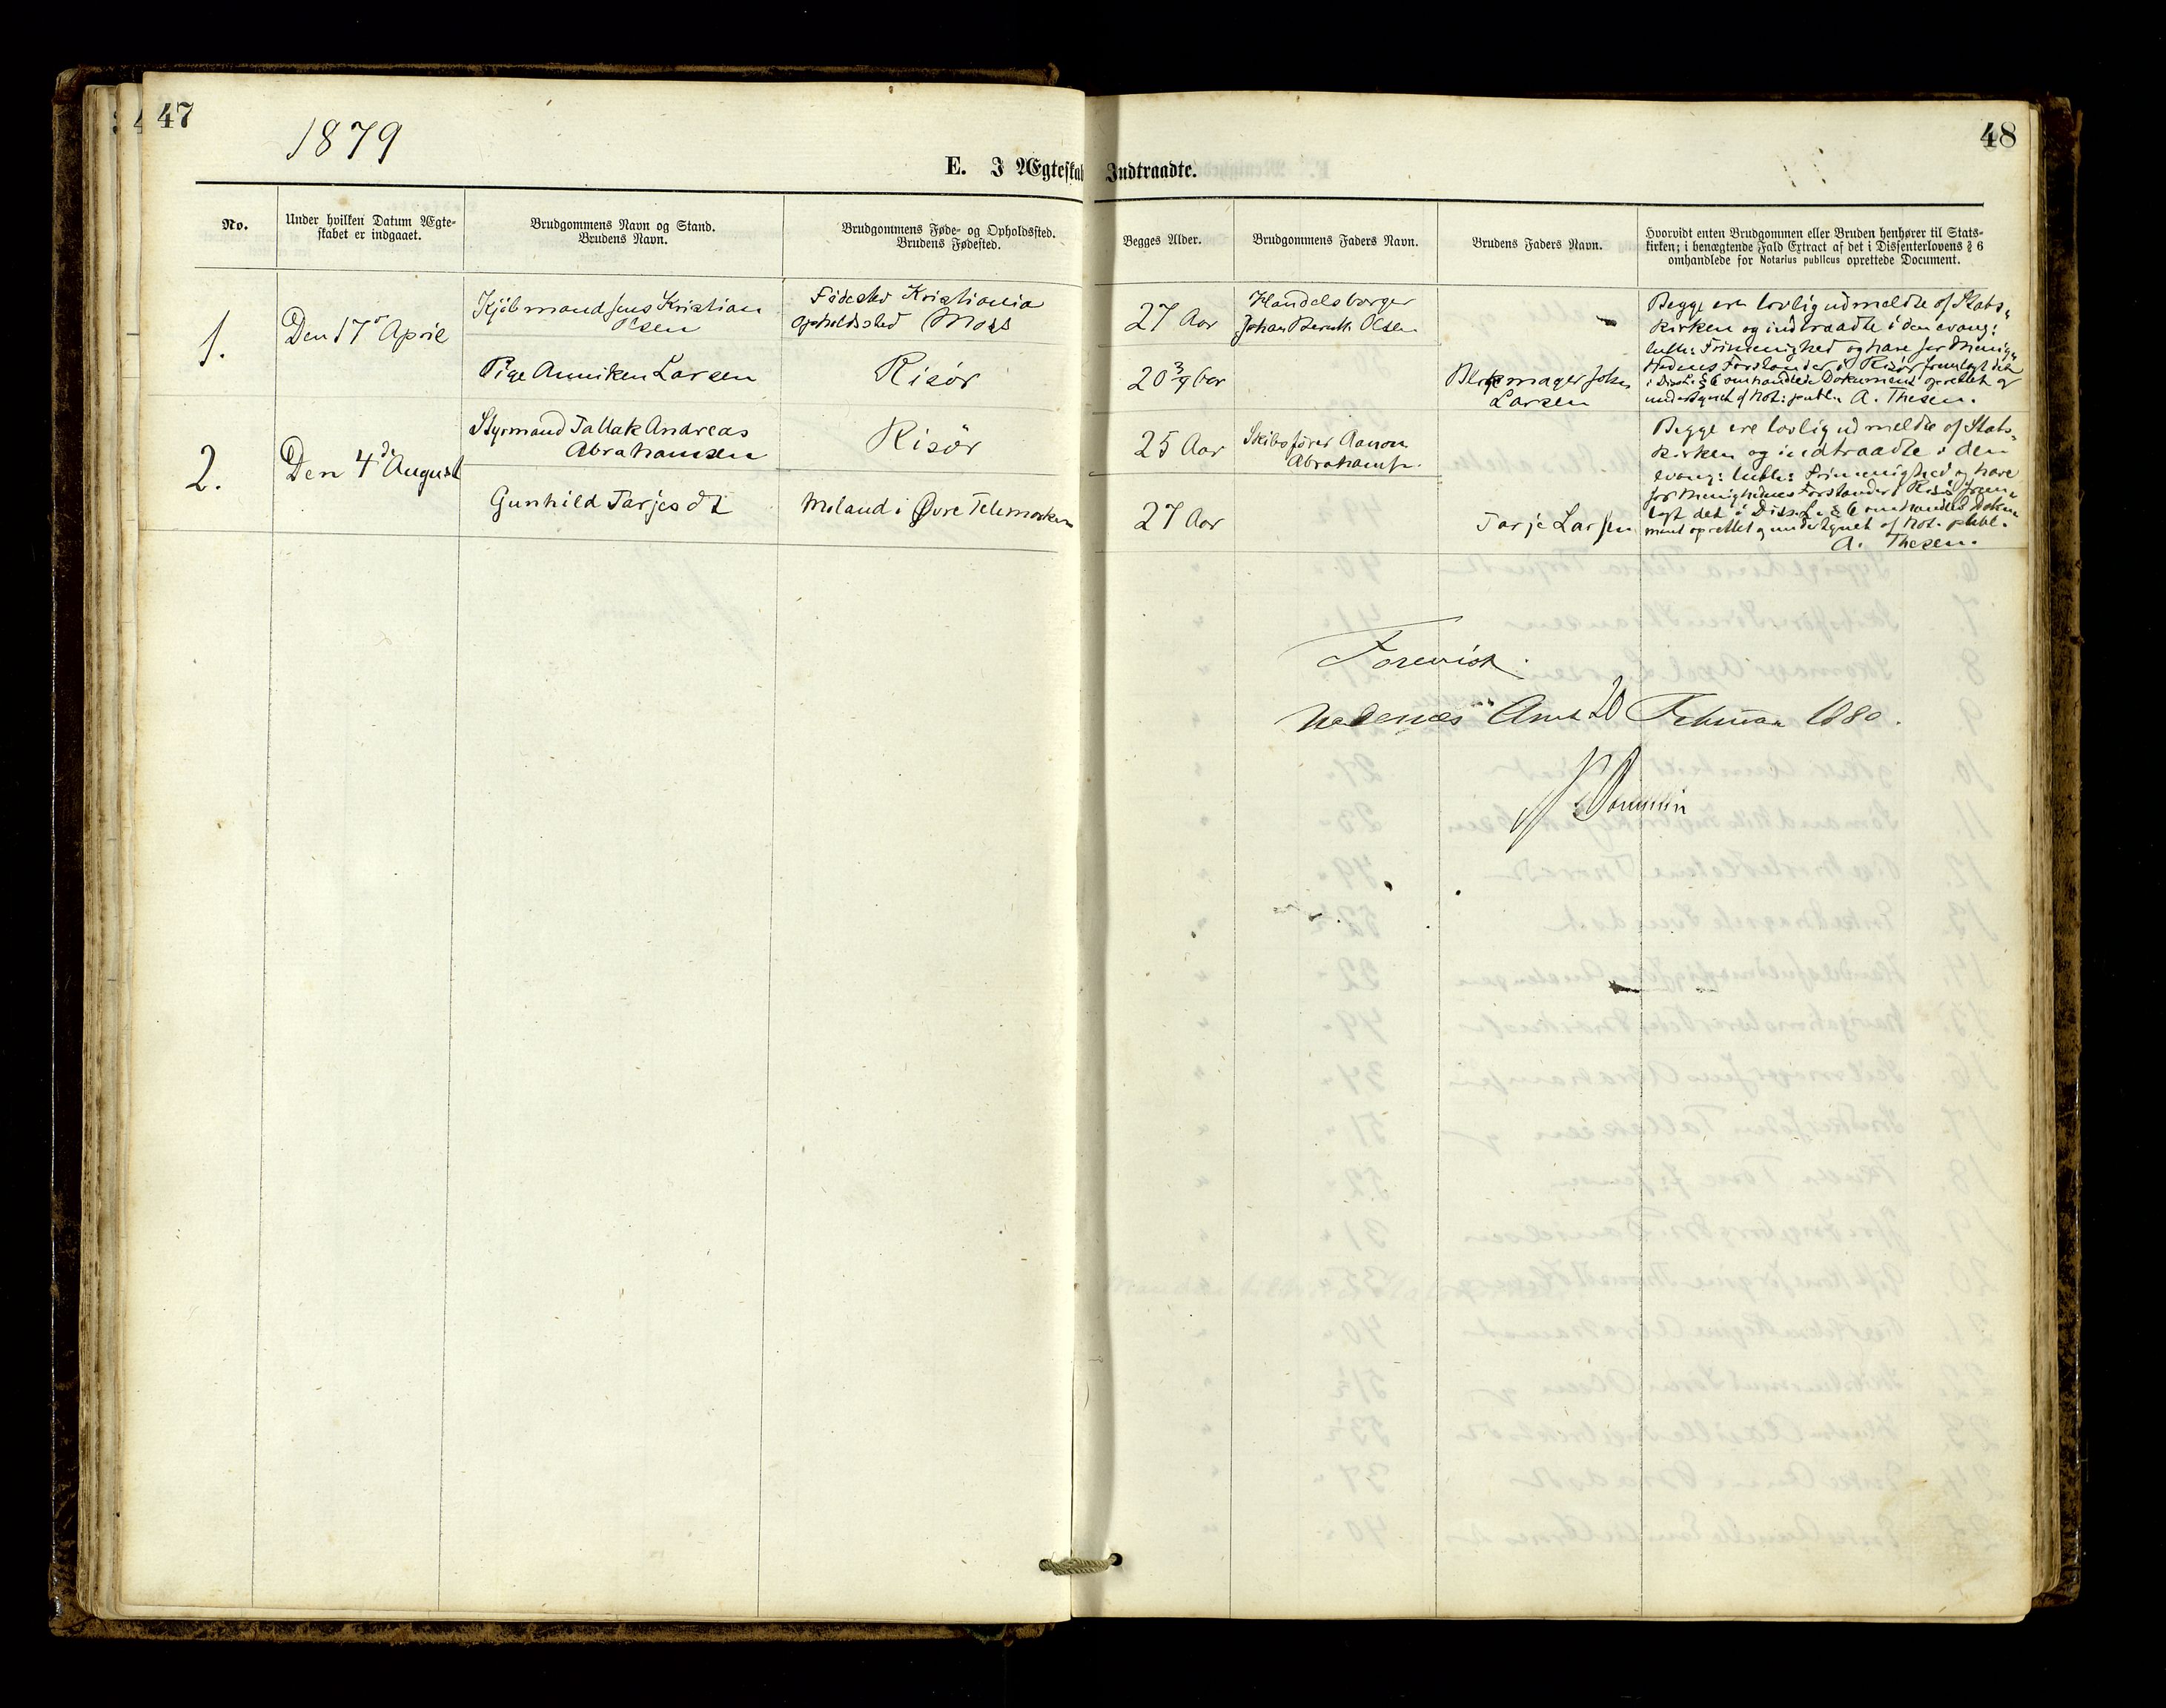 47
48
1879
E. I Ægteskab Indtraadte.
No.
Under hvilken Datum Ægte-
skabet er indgaaet.
Brudgommens Navn og Stand.
Brudens Navn.
Brudgommens Føde- og Opholdssted.
Brudens Fødested.
Begges Alder.
Brudgommens Faders Navn.
Brudens Faders Navn.
Hvorvidt enten Brudgommen eller Bruden henhører til Stats-
kirken; i benægtende Fald Extract af det i Dissenterlovens § 6
omhandlede for Notarius publicus oprettede Document.
1.
Den 17 April
Kjöbmand Jens Kristian
Olsen
Födested Kristiania
Opholdssted Moss
27 Aar
Handelsborger
Johan Olsen
Pige Anniken Larsen
Risör
20 3/9 Aar
Blokmager John
Larsen
Begge ere lovlig udmeldte af Stats-
kirken og indtraadte i den evang:
luth: Frimenighed og have for Menig-
hedens Forstander i Risör fremlagt det
i Diss. L. § 6 omhandlede Dokument oprettet og
undertegnet af Not: publ. A. Thesen.
2.
Den 4de August
Styrmand Tallak Andreas
Abrahamsen
Risör
25 Aar
Skibsförer Aanon
Abrahams.
Gunhild Tarjesdt
Moland i Øvre Telemarken
27 Aar
Tarje Larsen
Begge ere lovlig udmeldte af Stats-
kirken og indtraadte i den
evang: luth: Frimenighed og have
for Menighedens Forstander i Risör frem-
lagt det i Diss. L. § 6 omhandlede Doku-
ment oprettet og undertegnet af Not. publ.
A. Thesen.
Forevist
Nedenæs Amt 20 Februar 1880.